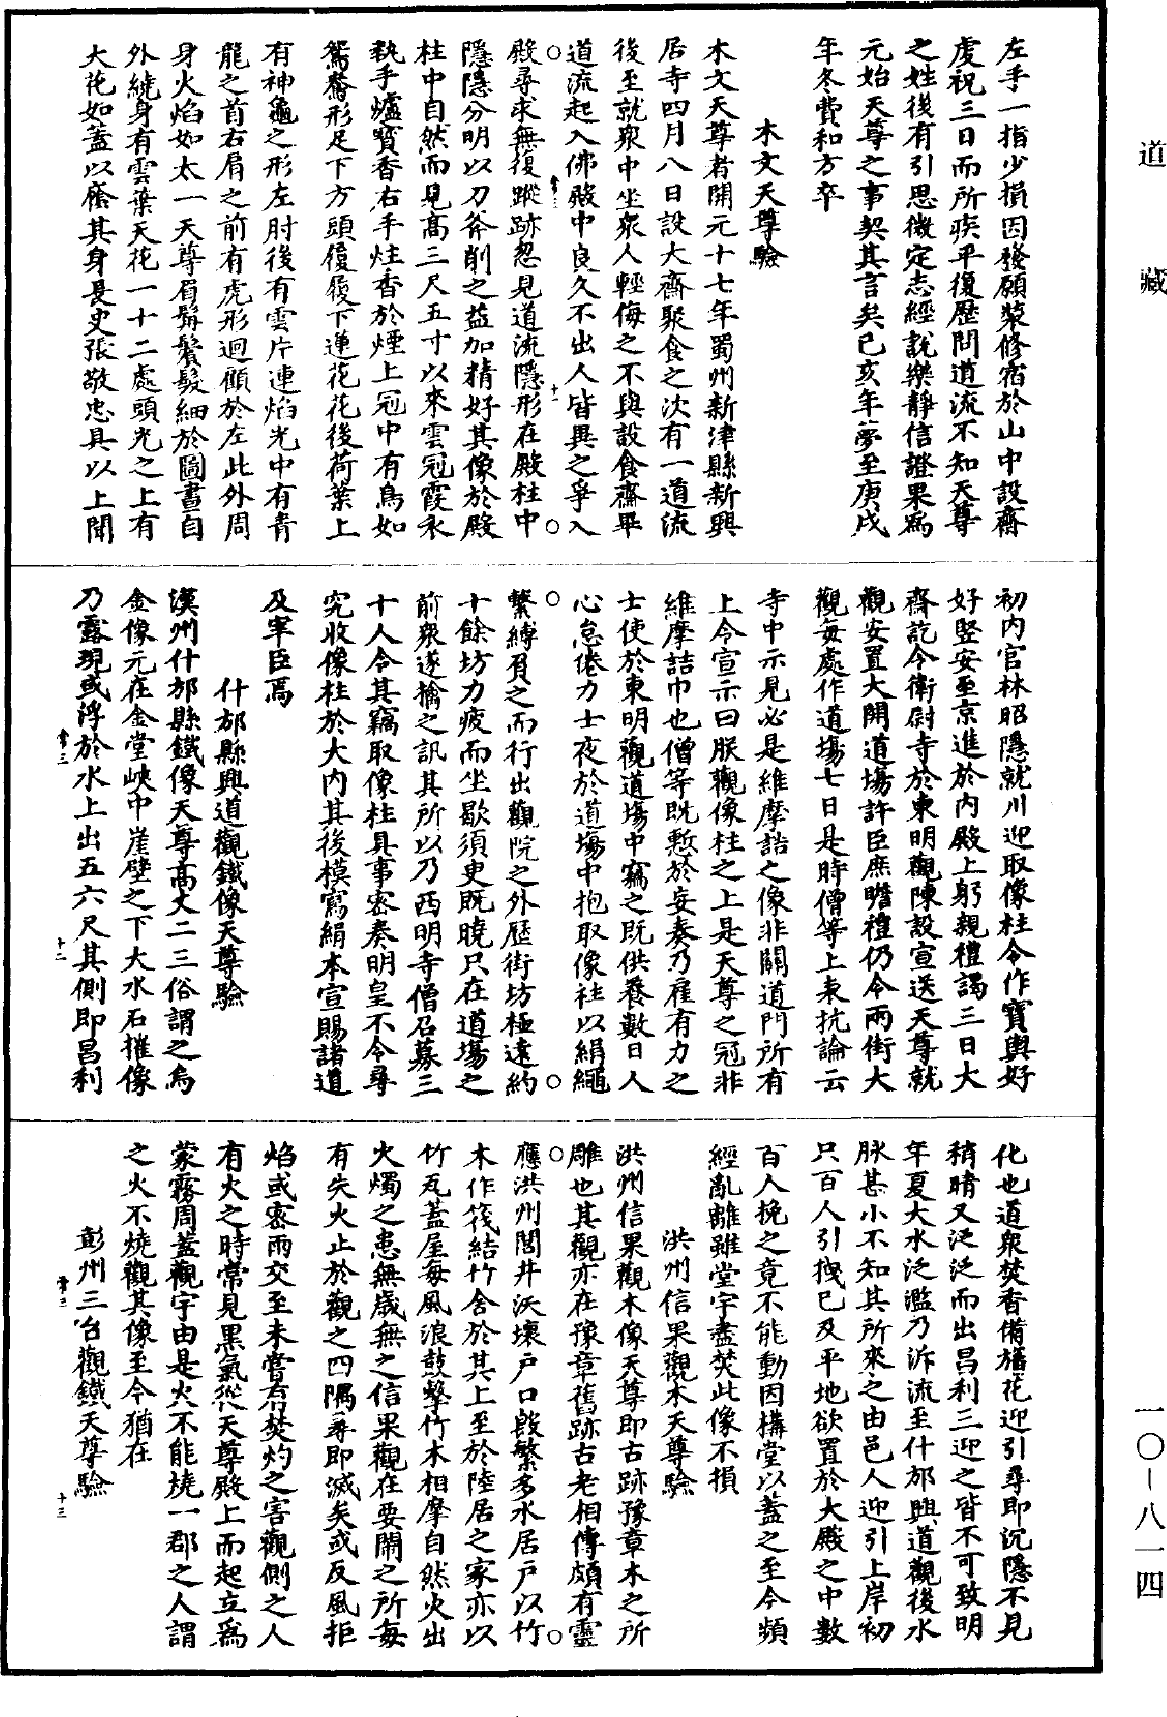 道藏
左手一指少損因發願裝修宿於山中設齋
虔祝三日而所疾平復歷問道流不知天尊
之姓後有引思微定志經說樂靜信證果爲
元始天尊之事契其言矣己亥年夢至庚戌
年冬費和方卒
木文天尊驗
木文天尊者開元十七年蜀州新津縣新興
居寺四月八日設大齋聚食之次有一道流
後至就衆中坐衆人輕侮之不與設食齋畢
道流起入佛殿中良久不出人皆異之爭入
殿尋求無復蹤跡忽見道流隱形在殿柱中
隱隱分明以刀斧削之益加精好其像於殿
柱中自然而見高三尺五寸以來雲冠霞衣
執手爐寶香右手炷香於煙上冠中有鳥如
鴛鴦形足下方頭履履下蓮花花後荷葉上
有神龜之形左肘後有雲片連焰光中有青
龍之首右肩之前有虎形迴顧於左此外周
身火焰如太一天尊眉髯鬢髮細於圖畫自
外繞身有雲葉天花一十二處頭光之上有
大花如蓋以癊其身長史張敬忠具以上聞
初内官林昭隱就川迎取像柱令作寶輿好
好竪安至京進於内殿上躬親禮謁三日大
齋訖令衛尉寺於東明觀陳設宣送天尊就
觀安置大開道場許臣庶瞻禮仍令兩街大
觀每處作道場七日是時僧等上表抗論云
寺中示見必是維摩詰之像非關道門所有
上令宣示曰朕觀像柱之上是天尊之冠非
維摩詰巾也僧等既慙於妄奏乃雇有力之
士使於東明觀道場中竊之既供養數日人
心怠倦力士夜於道場中抱取像柱以絹繩
繫縛負之而行出觀院之外歷街坊極遠約
十餘坊力疲而坐歇須臾既曉只在道場之
前衆遂擒之訊其所以乃西明寺僧召募三
十人令其竊取像柱具事密奏明皇不令尋
究收像柱於大内其後模寫絹本宣賜諸道
及宰臣焉
什邡縣興道觀鐵像天尊驗
漢州什邡縣鐵像天尊高丈二三俗謂之烏
金像元在金堂峽中崖壁之下大水石摧像
乃露現或浮於水上出五六尺其側即昌利
化也道衆焚香備旛花迎引尋即沉隱不見
稍晴又泛泛而出昌利三迎之皆不可致明
年夏大水泛濫乃泝流至什邡興道觀後水
脉甚小不知其所來之由邑人迎引上岸初
只百人引拽已及平地欲置於大殿之中數
百人挽之竟不能動因構堂以蓋之至今頻
經亂離雖堂宇盡焚此像不損
洪州信果觀木天尊驗
洪州信果觀木像天尊即古跡豫章木之所
雕也其觀亦在豫章舊跡古老相傳頗有靈
應洪州閭井沃壤戶口殷繁多水居戶以竹
木作筏結竹舍於其上至於陸居之家亦以
竹瓦蓋屋每風浪鼓擊竹木相摩自然火出
火燭之患無歲無之信果觀在要鬧之所每
有失火止於觀之四隅尋即滅矣或反風拒
焰或密雨交至未嘗有焚灼之害觀側之人
有火之時常見黑氣從天尊殿上而起立爲
蒙霧周蓋觀宇由是火不能燒一郡之人謂
之火不燒觀其像至今猶在
彭州三台觀鐵天尊驗
一〇—八一四